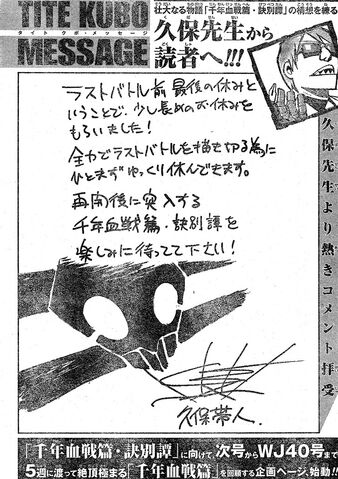 TITE KUBO
タイトクボ・メッセージ
MESSAGE
壮大なる物語「千年血戦篇・訣別譚」の構想を練る
久保先生から
読者へ!!!
ラストバトル前最後の休みと
いうことで、少し長めのお休みを
もらいました!
全力でラストバトルを描き切る為に
ひとまずゆっくり休んできます。
再開後に突入する
千年血戦篇・訣別譚を
楽しみに待ってて下さい!
久保先生より熱きコメント拝受
久保帯人.
「千年血戦篇・訣別譚」に向けて、次号からWJ40号まで
5週に渡って絶頂極まる「千年血戦篇」を回顧する企画ページ、始動!!